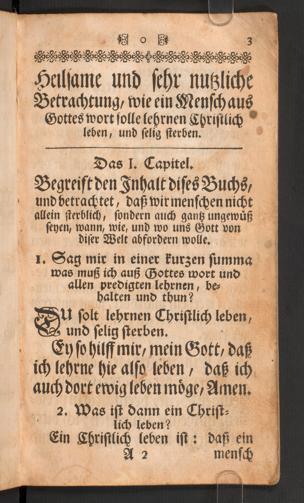 o 3
Heilsame und sehr nutzliche
Betrachtung, wie ein Mensch aus
Gottes wort solle lehrnen Christlich
leben, und selig sterben.
Das I. Capitel.
Begreift den Inhalt dises Buchs,
und betrachtet, daß wir menschen nicht
allein sterblich, sondern auch gantz ungewüß
seyen, wann, wie, und wo uns Gott von
diser Welt abfordern wolle.
1. Sag mir in einer kurzen summa
was muß ich auß Gottes wort und
allen predigten lehrnen, be-
halten und thun?
DU solt lehrnen Christlich leben,
und selig sterben.
Ey so hilff mir, mein Gott, daß
ich lehrne hie also leben, daß ich
auch dort ewig leben möge, Amen.
2. Was ist dann ein Christ-
lich leben?
Ein Christlich leben ist: daß ein
A 2 mensch